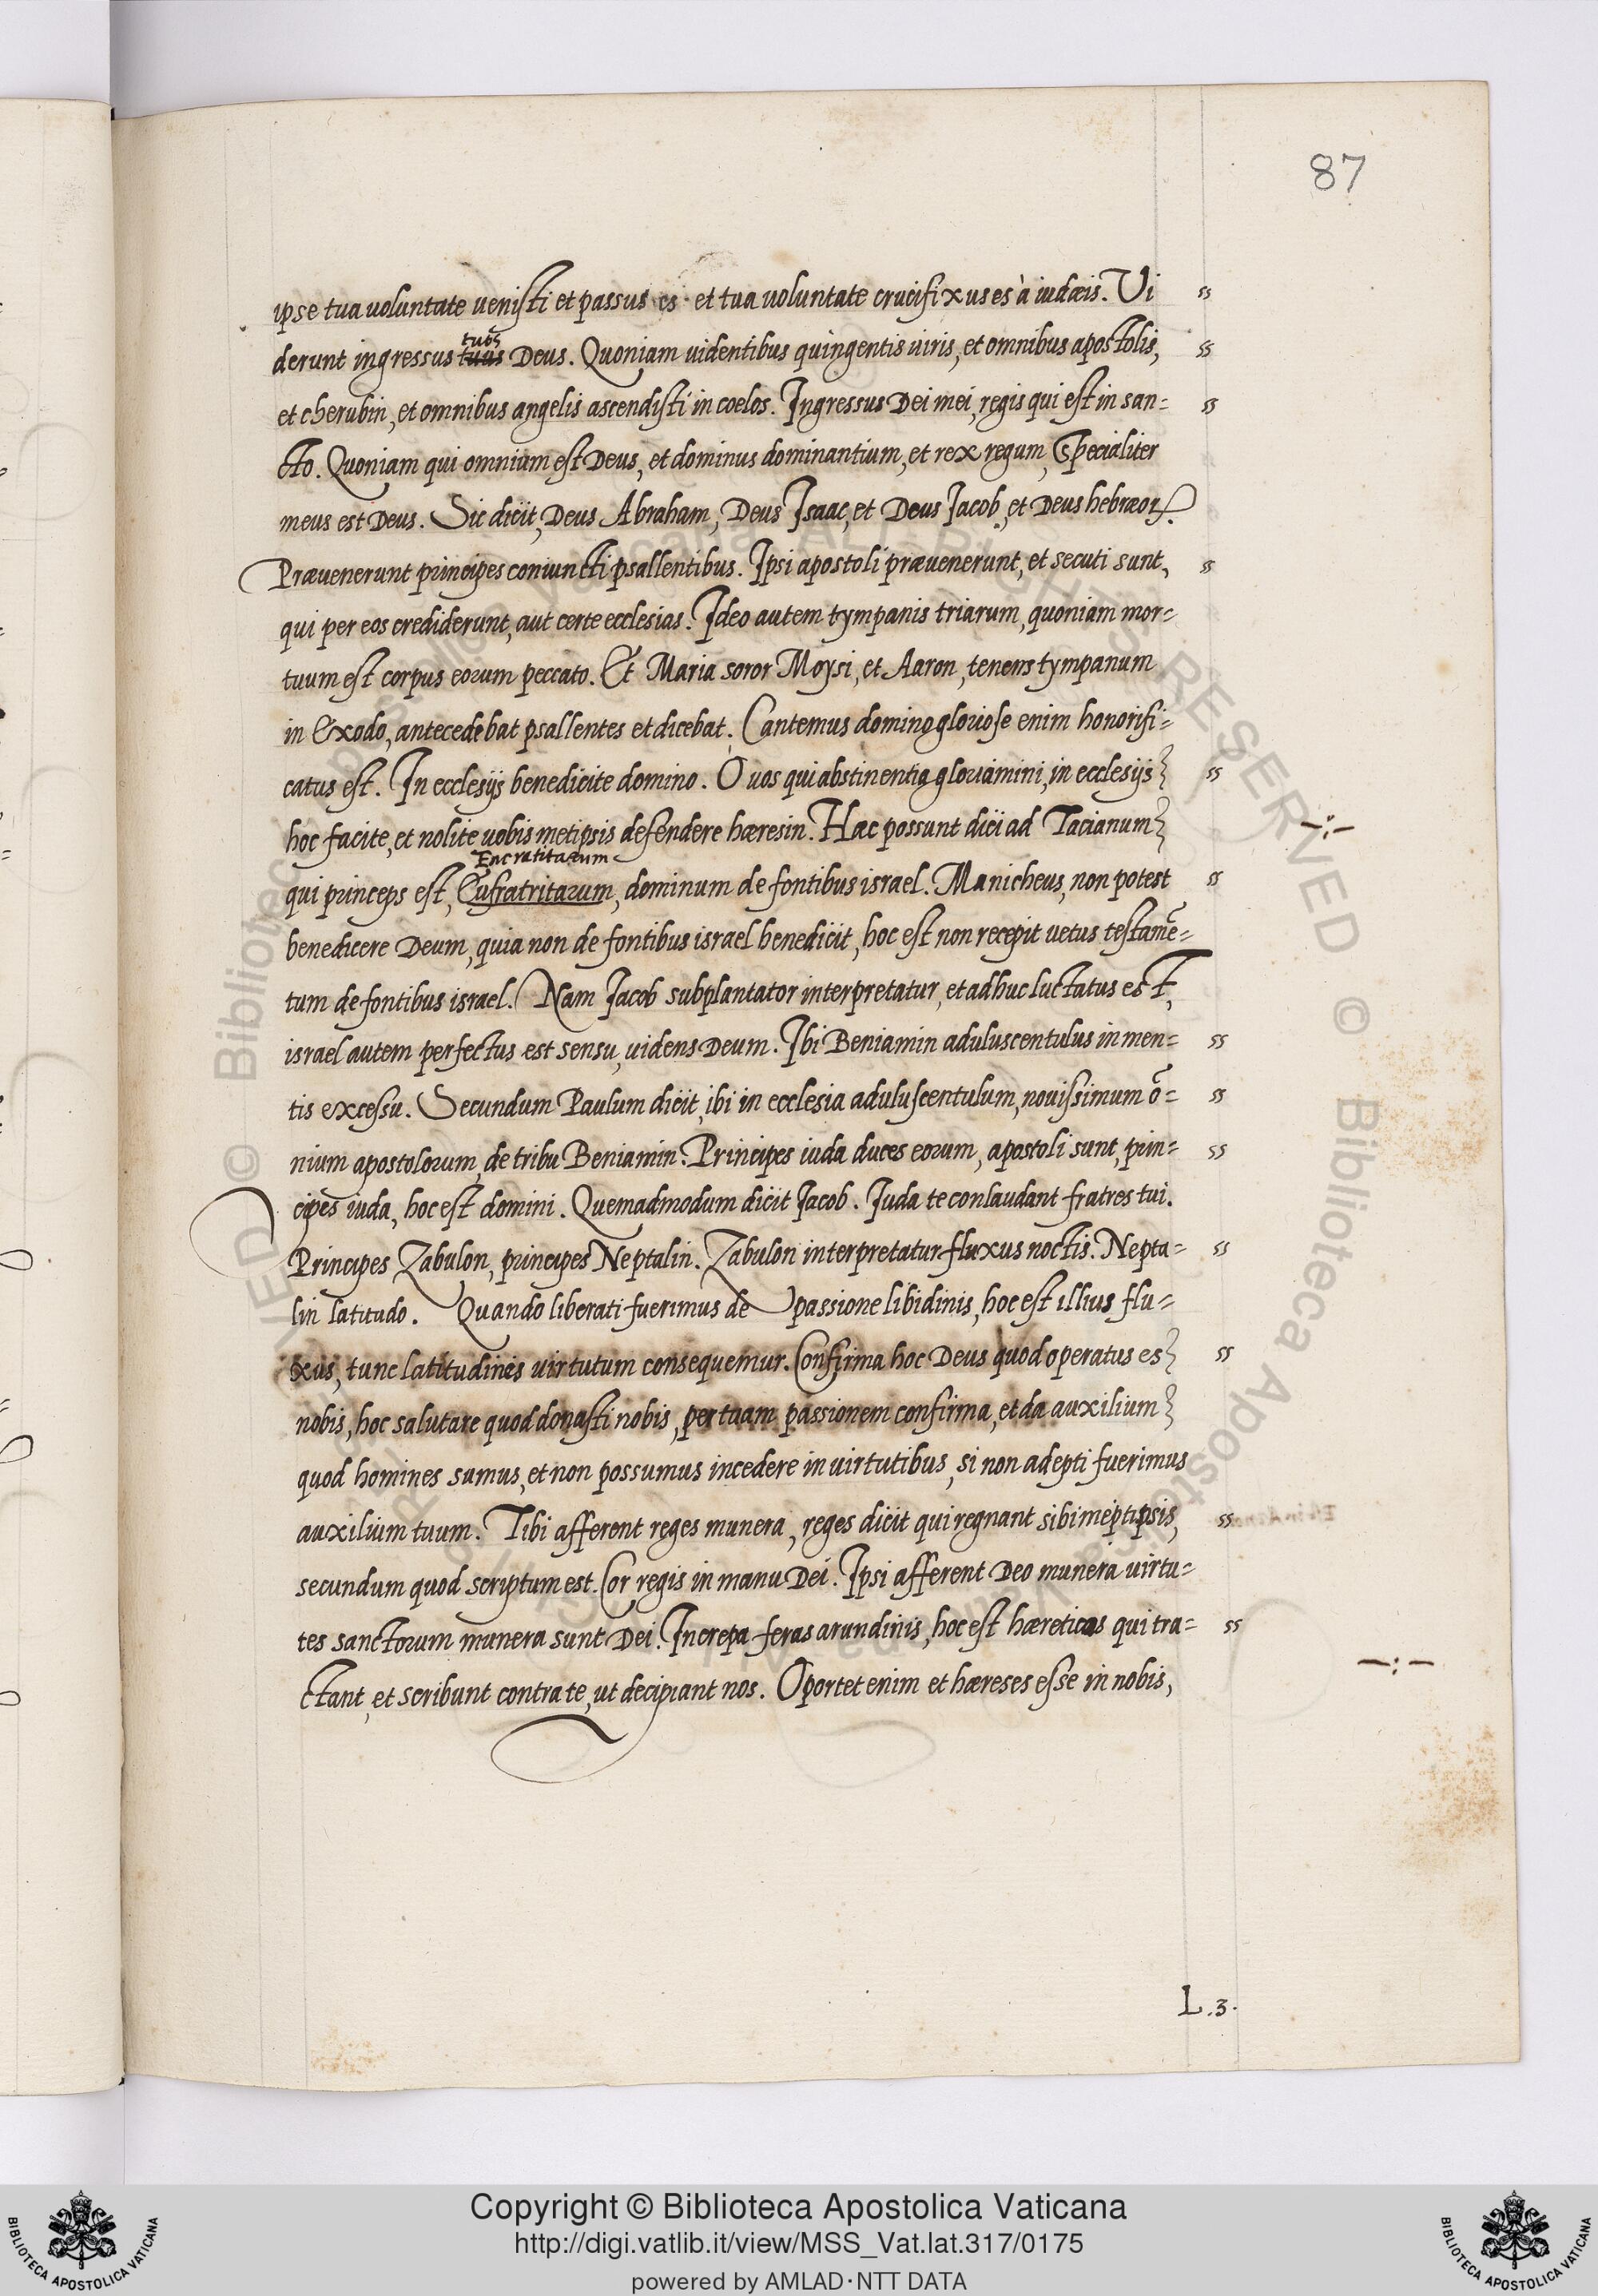 87
ipse tua voluntate uenisti et passus es et tua uoluntate crucifixus es à iudæis. Vi
tuos
derunt ingressus tuus Deus. Quoniam uidentibus quingentis uiris, et omnibus apostolis,
et cherubin, et omnibus angelis ascendisti in coelos. Ingressus Dei mei, regis qui est in san=
cto. Quoniam qui omnium est Deus, et dominus dominantium, et rex regum, Specialiter
meus est Deus. Sic dicit, Deus Abraham, Deus Isaac, et Deus Jacob, et Deus hebræoꝝ.
Præuenerunt principes coniuncti psallentibus. Ipsi apostoli præuenerunt, et secuti sunt,
qui per eos crediderunt, aut certe ecclesias. Ideo autem tympanis triarum, quoniam mor=
tuum est corpus eorum peccato. Et Maria soror Moysi, et Aaron, tenens tympanum
in Exodo, antecedebat psallentes et dicebat. Cantemus domino gloriose enim honorifi=
catus est. In ecclesijs benedicite domino. O uos qui abstinentia gloriamini, in ecclesijs
hoc facite, et nolite uobis metipsis defendere hæresin. Hæc possunt dici ad Tacianum
Encratitarum
qui princeps est, Eufratritarum, dominum de fontibus israel. Manicheus, non potest
benedicere Deum, quia non de fontibus israel benedicit, hoc est non recepit uetus testamē=
tum de fontibus israel. Nam Jacob subplantator interpretatur, et adhuc luctatus est,
israel autem perfectus est sensu, uidens Deum. Ibi Beniamin aduluscentulus in men=
tis excessu. Secundum Paulum dicit, ibi in ecclesia aduluscentulum, nouissimum ō=
nium apostolorum, de tribu Beniamin. Principes iuda duces eorum, apostoli sunt, prin=
cipes iuda, hoc est domini. Quemadmodum dicit Jacob. Juda te conlaudant fratres tui.
Principes Zabulon, principes Neptalin. Zabulon interpretatur fluxus noctis. Nepta=
lin latitudo. Quando liberati fuerimus de passione libidinis, hoc est illius flu=
xus, tunc latitudinis uirtutum consequemur. Confirma hoc Deus quod operatus es
nobis, hoc salutare quod donasti nobis, per tuam passionem confirma, et da auxilium
quod homines sumus, et non possumus incedere in uirtutibus, si non adepti fuerimus
auxilium tuum. Tibi afferent reges munera, reges dicit qui regnant sibimeptipsis,
secundum quod scriptum est. Cor regis in manu Dei. Ipsi afferent Deo munera uirtu=
tes sanctorum munera sunt Dei. Increpa feras arundinis, hoc est hæreticos qui tra=
ctant, et scribunt contra te, ut decipiant nos. Oportet enim et hæreses esse in nobis,
L.3.
Copyright © Biblioteca Apostolica Vaticana
http://digi.vatlib.it/view/MSS_Vat.lat.317/0175
powered by AMLAD·NTT DATA
BIBLIOTECA APOSTOLICA VATICANA
BIBLIOTECA APOSTOLICA VATICANA